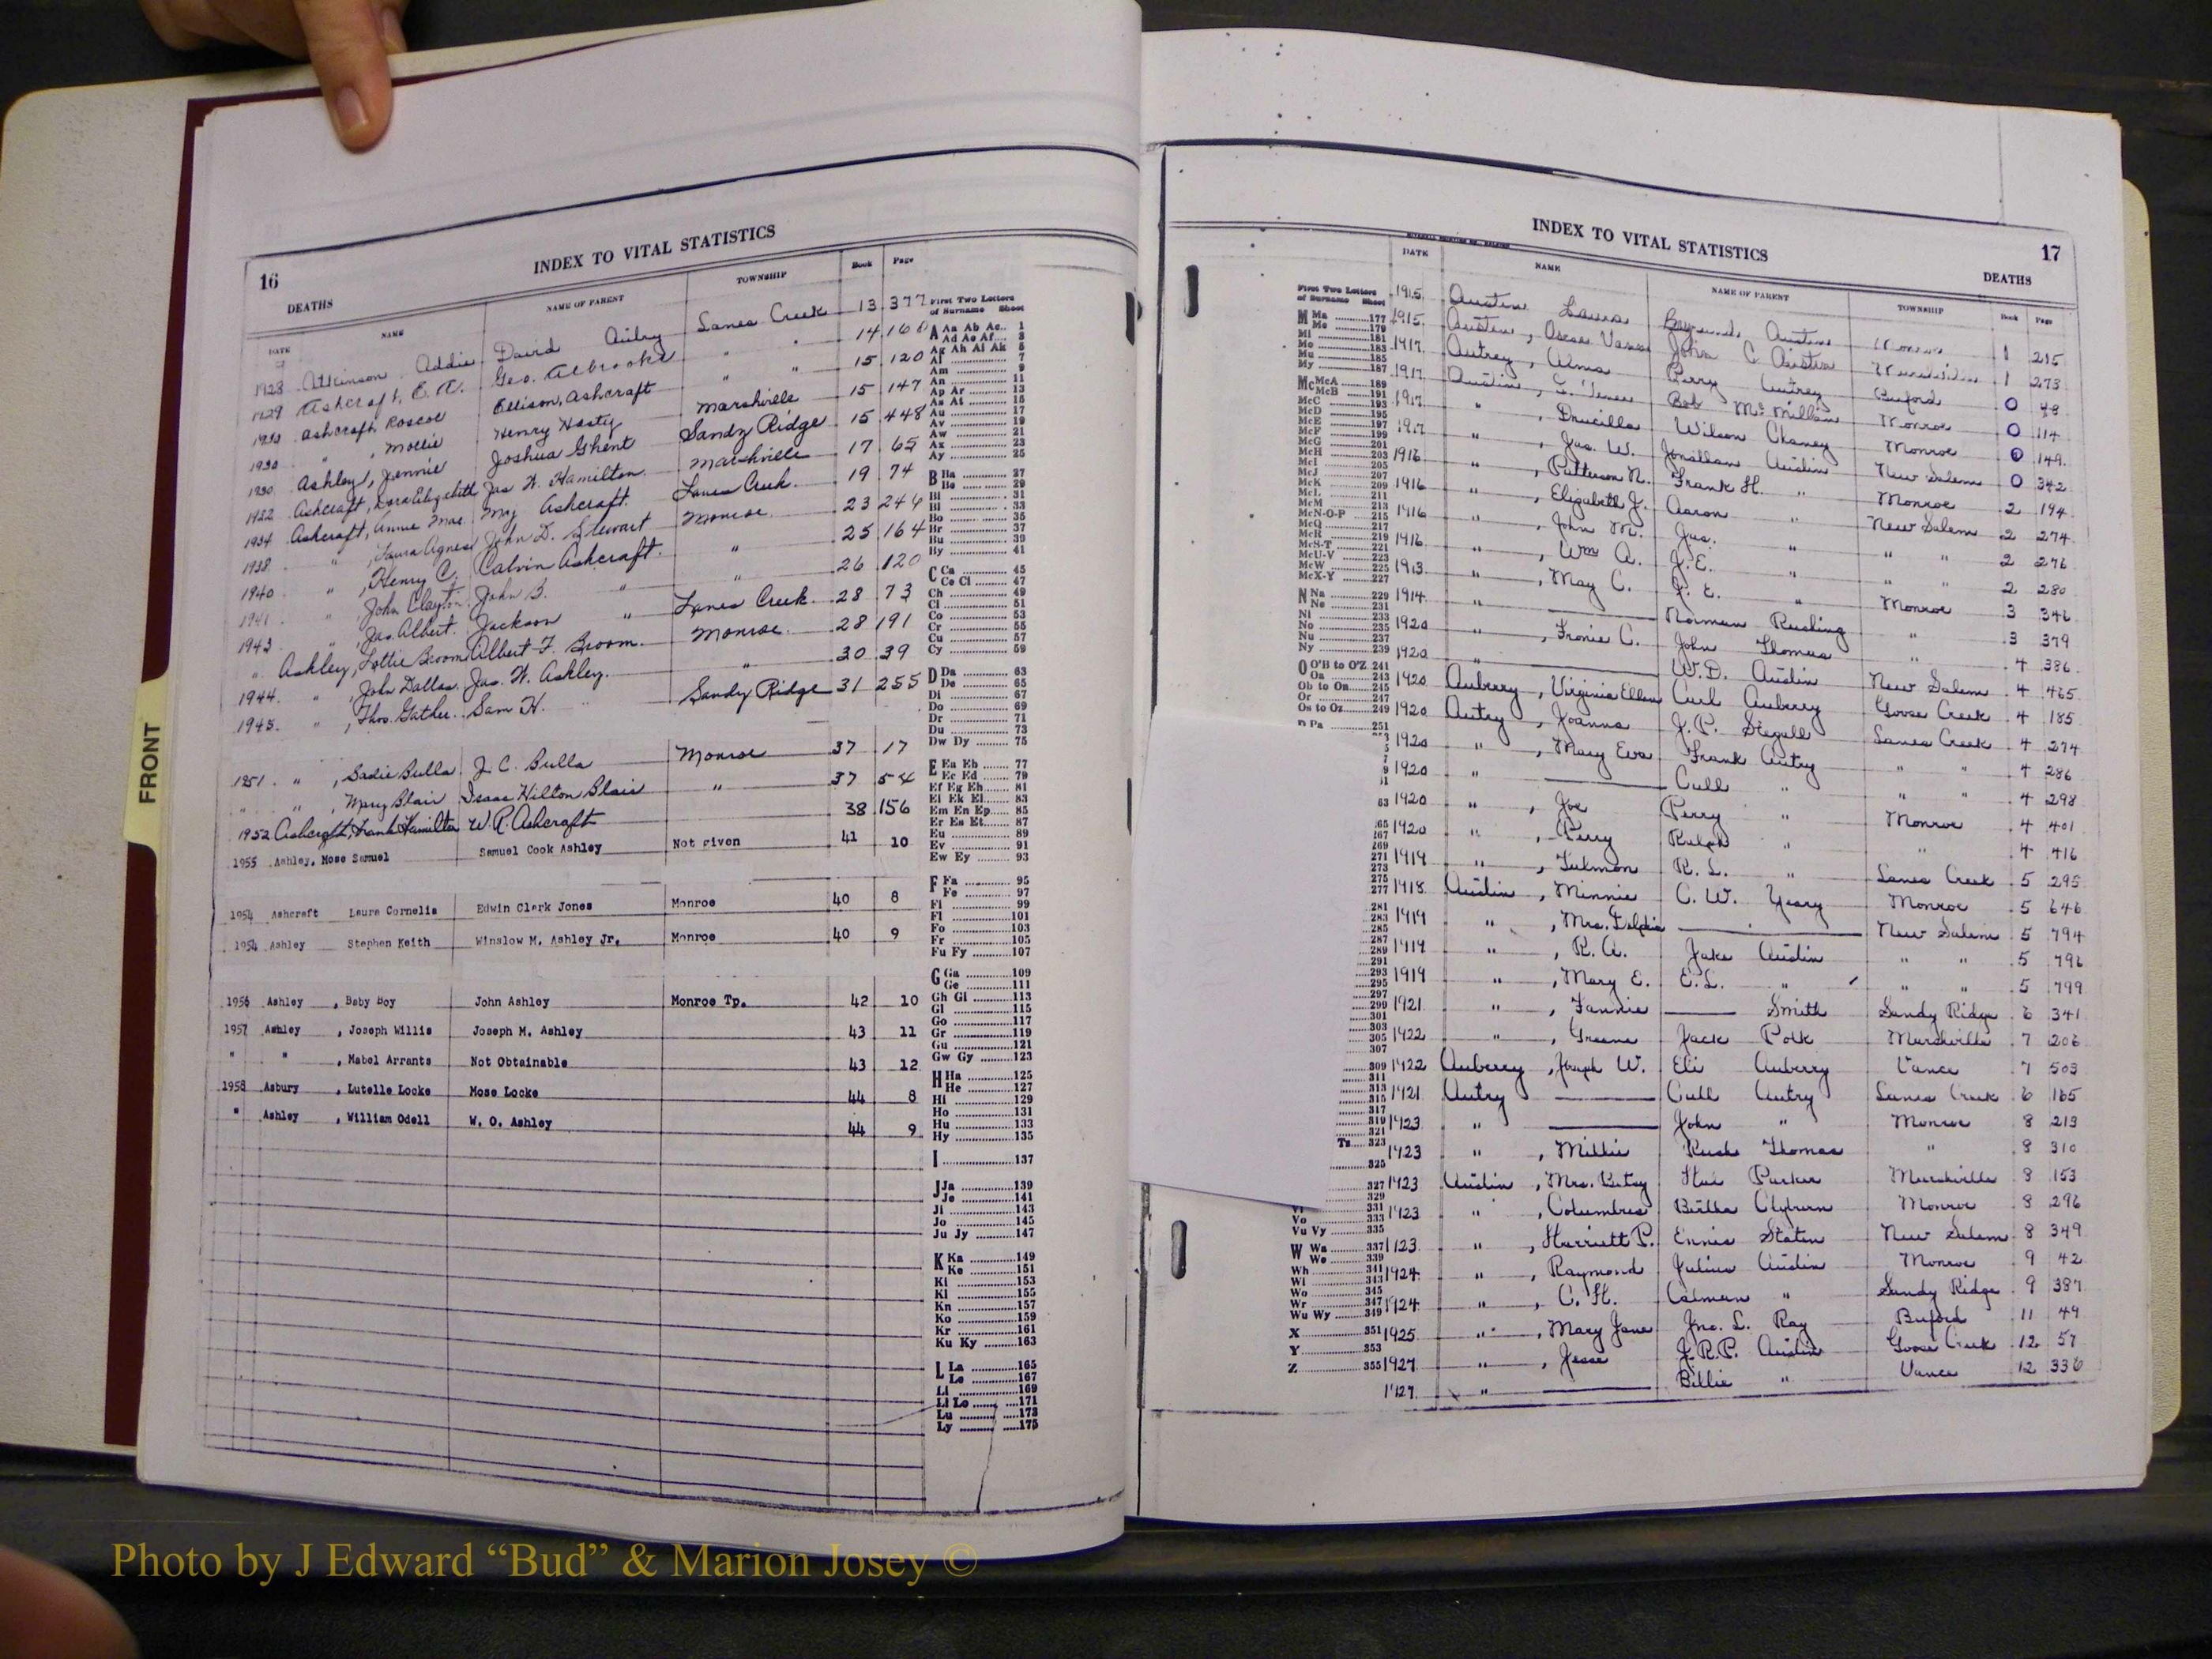 FRONT
16
INDEX TO VITAL STATISTICS
DEATHS
DATE NAME NAME OF PARENT TOWNSHIP Book Page
1928 Atkinson Addie David Autry Lanes Creek 13 377
1929 Ashcraft, E. A. Geo. Albrooks " " 14 168
1930 Ashcraft, Roscoe Ellison, Ashcraft " " 15 120
1930 " , Mollie Henry Hasty Marshville 15 147
1930 Ashley, Jennie Joshua Ghent Sandy Ridge 15 448
1932 Ashcraft, Dora Elizabeth Jas H. Hamilton Marshville 17 65
1934 Ashcraft, Annie Mae Ashcraft. Lanes Creek. 19 74
1938 " , Laura Agnes John D. Stewart Monroe 23 246
1940 " , Henry C. Calvin Ashcraft. " 25 164
1941 " John Clayton John B. " " 26 120
1943 " Jas. Albert. Jackson " Lanes Creek. 28 73
" Ashley, Lottie Broom Albert F. Broom. Monroe. 28 191
1944. " John Dallas. Jas. H. Ashley. " 30 39
1945. " , Thos. Gather. Sam H. " Sandy Ridge 31 255
1951 " , Sadie Bulla J. C. Bulla Monroe 37 17
" " , Mary Blair Isaac Hilton Blair " 37 54
1952 Ashcraft, Frank Hamilton W. R. Ashcraft 38 156
1955 Ashley, Mose Samuel Samuel Cook Ashley Not given 41 10
1954 Ashcraft Laura Cornelia Edwin Clark Jones Monroe 40 8
1954 Ashley Stephen Keith Winslow M. Ashley Jr. Monroe 40 9
1956 Ashley , Baby Boy John Ashley Monroe Tp. 42 10
1957 Ashley , Joseph Willis Joseph M. Ashley 43 11
" " , Mabel Arrants Not Obtainable 43 12
1958 Asbury , Lutelle Locke Mose Locke 44 8
" Ashley , William Odell W. O. Ashley 44 9
First Two Letters
of Surname Sheet
A Aa Ab Ac.. 1
Ad Ae Af... 3
Ag Ah Ai Ak 5
Al 7
Am 9
An 11
Ap Ar 13
As At 15
Au 17
Av 19
Aw 21
Ax 23
Ay 25
B Ba 27
Be 29
Bi 31
Bl 33
Bo 35
Br 37
Bu 39
By 41
C Ca 45
Ce Ci 47
Ch 49
Cl 51
Co 53
Cr 55
Cu 57
Cy 59
D Da 63
De 65
Di 67
Do 69
Dr 71
Du 73
Dw Dy 75
E Ea Eb 77
Ec Ed 79
Ef Eg Eh 81
Ei Ek El 83
Em En Ep 85
Er Es Et 87
Eu 89
Ev 91
Ew Ey 93
F Fa 95
Fe 97
Fi 99
Fl 101
Fo 103
Fr 105
Fu Fy 107
G Ga 109
Ge 111
Gh Gi 113
Gl 115
Go 117
Gr 119
Gu 121
Gw Gy 123
H Ha 125
He 127
Hi 129
Ho 131
Hu 133
Hy 135
I 137
J Ja 139
Je 141
Ji 143
Jo 145
Ju Jy 147
K Ka 149
Ke 151
Ki 153
Kl 155
Kn 157
Ko 159
Kr 161
Ku Ky 163
L La 165
Le 167
Li 169
Ll Lo 171
Lu 173
Ly 175
INDEX TO VITAL STATISTICS
17
DEATHS
DATE NAME NAME OF PARENT TOWNSHIP Book Page
1915 Austin Laura Austin Monroe 1 215
1915 Austin, Oscar Vance John C. Austin Marshville 1 273
1917 Autrey, Alma Perry Autrey Buford 0 48
1917 Austin, Bob McMillan Monroe 0 114
1917 " , Drucilla Wilson Chaney Monroe 0 149
1917 " , Jas. W. Jonathan Austin New Salem 0 342
1916 " , Patterson N. Frank H. " Monroe 2 194
1916 " , Elizabeth J. Aaron " New Salem 2 274
1916 " , John M. Jas. " " " 2 276
1916 " , Wm A. J. E. " " " 2 280
1913 " , May C. " Monroe 3 346
1914 " Norman Rushing " 3 379
1920 " , Fronie C. John Thomas " 4 386
1920 " W. D. Austin New Salem 4 465
1920 Auberry, Virginia Ellen Carl Auberry Goose Creek 4 185
1920 Autry, Joanna J. P. Stegall Lanes Creek 4 274
1920 " , Mary Eva Frank Autry " " 4 286
1920 " Cull " " " 4 298
1920 " , Joe Perry " Monroe 4 401
1920 " , Perry Ralph " " 4 416
1919 " , Tulmon R. L. " Lanes Creek 5 295
1918 Austin, Minnie C. W. Yeary Monroe 5 646
1919 " , Mrs. Delphia New Salem 5 794
1919 " , R. A. Jake Austin " " 5 796
1919 " , Mary E. E. L. " " " 5 799
1921 " , Fannie Smith Sandy Ridge 6 341
1922 " , Greene Jack Polk Marshville 7 206
1922 Auberry, Joseph W. Eli Auberry Vance 7 503
1921 Autry Cull Autry Lanes Creek 6 165
1923 " John " Monroe 8 213
1923 " , Millie Rush Thomas " 8 310
1923 Austin, Mrs. Betsy Parker Marshville 8 153
1923 " , Columbus Clyburn Monroe 8 296
1923 " , Harriett P. Ennis Staten New Salem 8 349
1924 " , Raymond Julius Austin Monroe 9 42
1924 " , C. H. Calman " Sandy Ridge 9 387
1925 " , Mary Jane Jno. L. Ray Buford 11 49
1927 " , Jesse J. R. P. Austin Goose Creek 12 57
1927 " Billie " Vance 12 336
First Two Letters
of Surname Sheet
M Ma 177
Me 179
Mi 181
Mo 183
Mu 185
My 187
Mc McA 189
McB 191
McC 193
McD 195
McE 197
McF 199
McG 201
McH 203
McI 205
McJ 207
McK 209
McL 211
McM 213
McN-O-P 215
McQ 217
McR 219
McS-T 221
McU-V 223
McW 225
McX-Y 227
N Na 229
Ne 231
Ni 233
No 235
Nu 237
Ny 239
O O'B to O'Z 241
Oa 243
Ob to On 245
Or 247
Os to Oz 249
P Pa 251
63
265
267
269
271
273
275
277
281
283
285
287
289
291
293
295
297
299
301
303
305
307
309
311
313
315
317
319
321
Tz 323
325
327
329
Vi 331
Vo 333
Vu Vy 335
W Wa 337
We 339
Wh 341
Wi 343
Wo 345
Wr 347
Wu Wy 349
X 351
Y 353
Z 355
Photo by J Edward “Bud” & Marion Josey ©